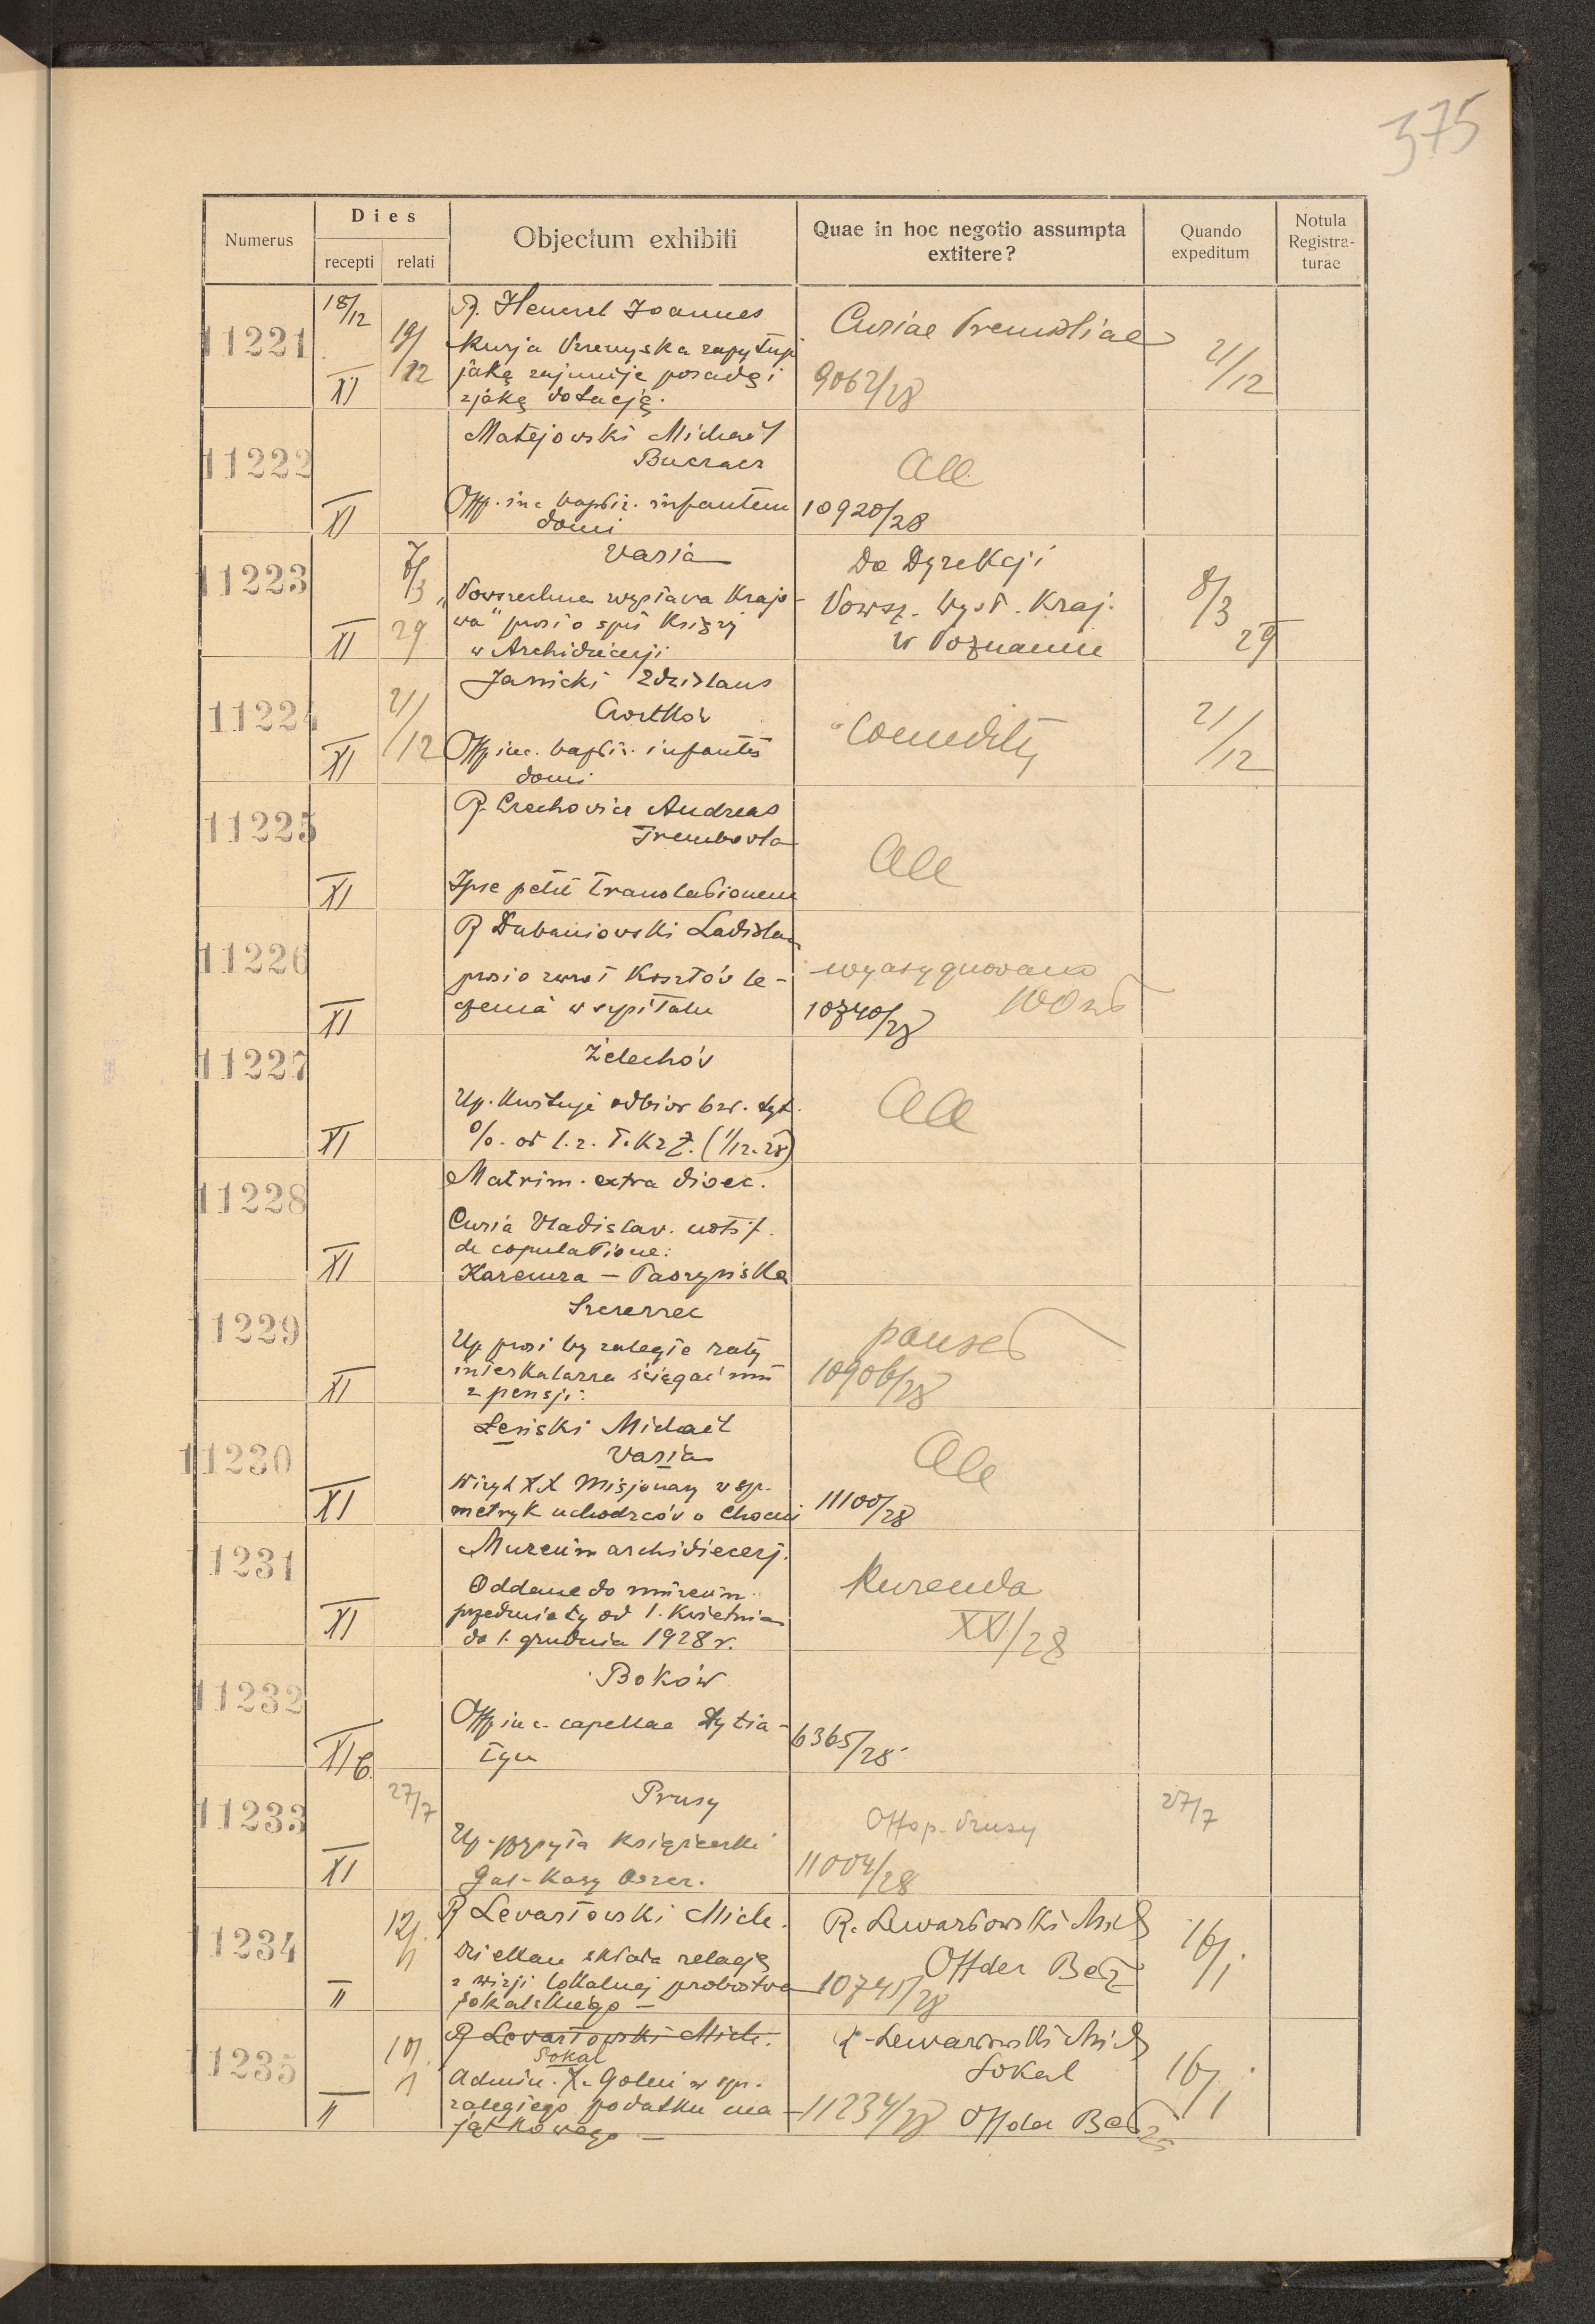 375
Numerus
Dies
recepti relati
Objectum exhibiti
Quae in hoc negotio assumpta
extitere?
Quando
expeditum
Notula
Registra-
turae
11221
18/12
XI
19/12
R. Hencrel Joannes
Kurja Przemyska zapytuje
jaką zajmuje posadę i
z jaką dotacją.
Curiae Premisliae
9062/28
21/12
11222
XI
Matejowski Michael
Buczacz
Off. inc. baptiz. infantem
domi
All
10920/28
11223
XI
8/3
29
Varia
"Powszechna wystawa Krajo-
wa" prosi o spis Księży
w Archidiecezji
Do Dyrekcji
Powsz. Wyst. Kraj.
w Poznaniu
8/3
29
11224
XI
21/12
Janicki Zdzislaus
Czortków
Off inc. baptiz. infantis
domi
21/12
11225
XI
R. Czechowicz Andreas
Trembowla
Ipse petit translationem
All
11226
XI
R Dubaniowski Ladislaus
prosi o zwrot kosztów le-
czenia w szpitalu
wyasygnowano
100 zł
10740/28
11227
XI
Żelechów
Up. kwituje odbiór
%. od l. z. T. K. Z. (1/12. 28)
All
11228
XI
Matrim. extra dioec.
Curia Vladislav. notif.
de copulatione:
11229
XI
Szczerzec
Up prosi by zaległe raty
interkalarza ściągać mu
z pensji.
10906/28
11230
XI
Leński Michael
Varia
Wizyt XX Misjonarzy w sp.
metryk uchodzców o Choceni
All
11100/28
11231
XI
Muzeum archidiecezj.
Oddane do muzeum
przedmioty od 1. Kwietnia
do 1. grudnia 1928 r.
Kurenda
XV/28
11232
XI b.
Boków
Off inc. capellae Dytia-
tyn
6365/28
11233
XI
27/7
Prusy
Up. przysyła książeczki
Gal. Kasy Oszcz.
Offo p. Prusy
11004/28
27/7
11234
II
12/1
R Lewartowski Mich.
Dziekan składa relację
z wizji lokalnej probostwa
Sokalskiego —
R. Lewartowski Mich
Offder Bełz
10745/28
16/1
11235
II
10/1
R Lewartowski Mich.
Sokal
Admin. X. Golni w spr.
zaległego podatku ma-
jątkowego —
X. Lewartowski Mich
Sokal
11234/28 Offder Bełz
16/1